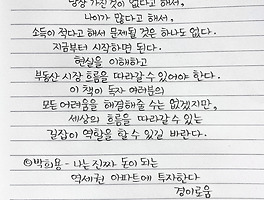 당장 가진 것이 없다고 해서,
나이가 많다고 해서,
소득이 적다고 해서 문제될 것은 하나도 없다.
지금부터 시작하면 된다.
현실을 이해하고
부동산 시장 흐름을 따라갈 수 있어야 한다.
이 책이 독자 여러분의
모든 어려움을 해결해줄 수는 없겠지만,
세상의 흐름을 따라갈 수 있는
길잡이 역할을 할 수 있길 바란다.
◎박희용 - 나는 진짜 돈이 되는
역세권 아파트에 투자한다
경이로움